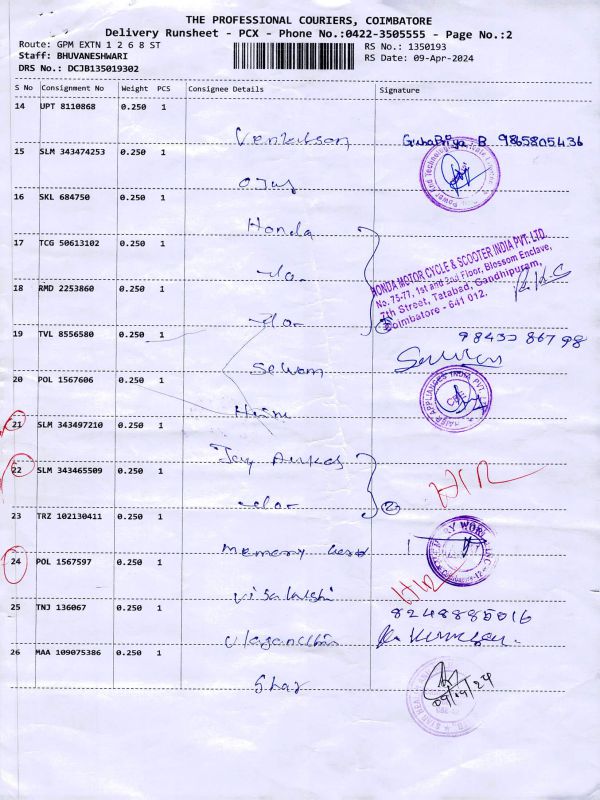 THE PROFESSIONAL COURIERS, COIMBATORE
Delivery Runsheet - PCX - Phone No.:0422-3505555 - Page No.:2
Route: GPM EXTN 1 2 6 8 ST
RS No.: 1350193
Staff: BHUVANESHWARI
RS Date: 09-Apr-2024
DRS No.: DCJB135019302
S No Consignment No Weight PCS Consignee Details Signature
14 UPT 8110868 0.250 1
Venkatesan GuhaPriya B 9865805436
15 SLM 343474253 0.250 1
Ojas
16 SKL 684750 0.250 1
Honda
17 TCG 50613102 0.250 1
-do-
HONDA MOTOR CYCLE & SCOOTER INDIA PVT. LTD.
No. 75-77, 1st and 2nd Floor, Blossom Enclave,
7th Street, Tatabad, Gandhipuram,
Coimbatore - 641 012.
18 RMD 2253860 0.250 1
-do-
19 TVL 8556580 0.250 1
98433 86798
Selvam
20 POL 1567606 0.250 1
HAIER APPLIANCES INDIA PVT
21 SLM 343497210 0.250 1
22 SLM 343465509 0.250 1
-do- 2
23 TRZ 102130411 0.250 1
Memory
24 POL 1567597 0.250 1
Visalakshi
8248885016
25 TNJ 136067 0.250 1
26 MAA 109075386 0.250 1
Star
09/04/24